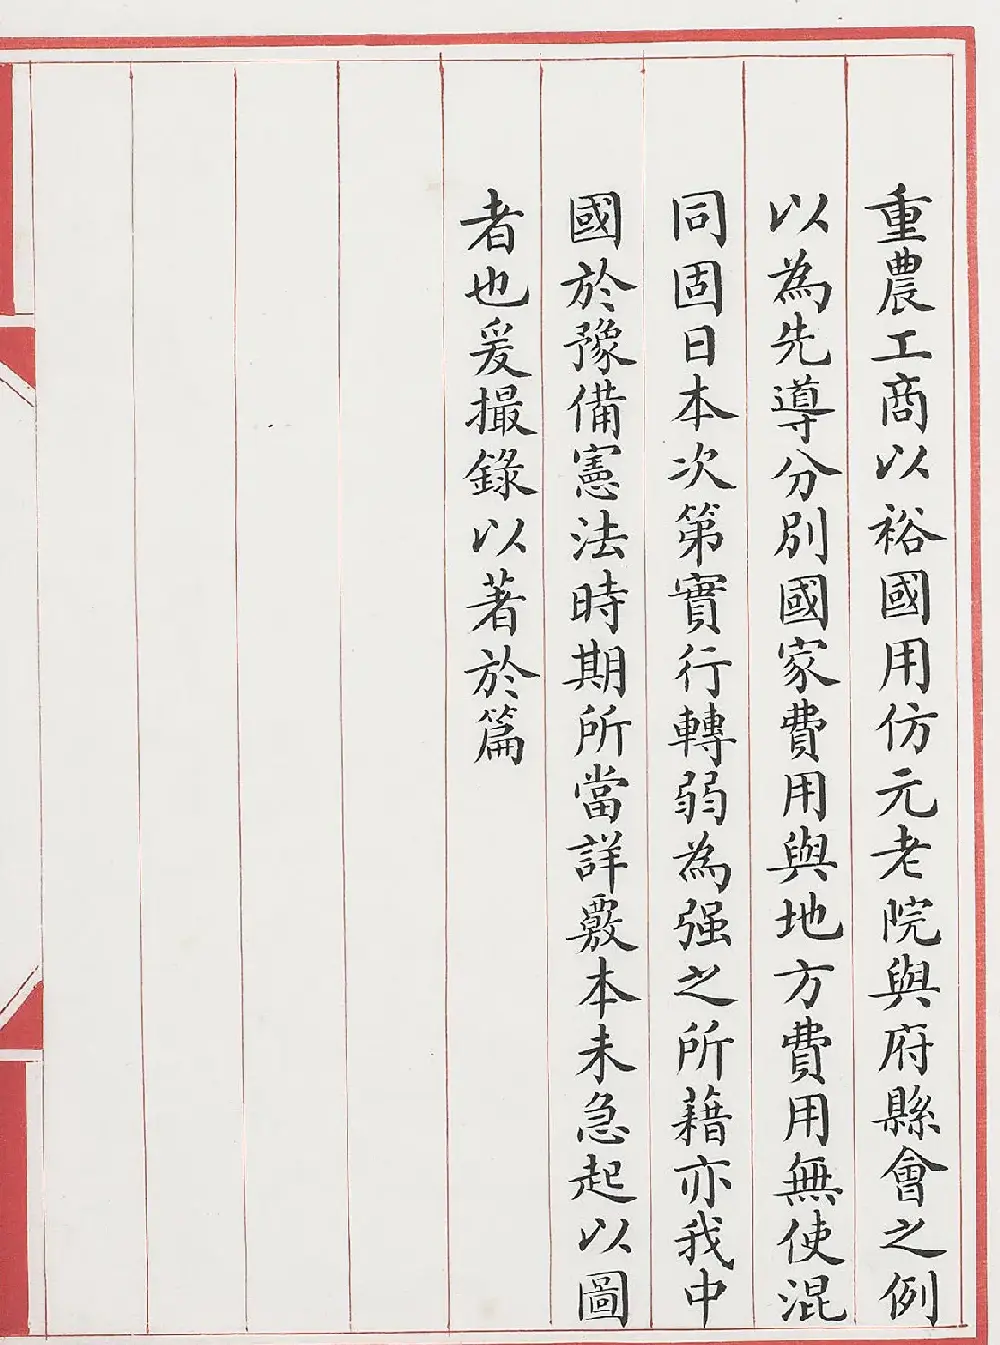 重農工商以裕國用仿元老院與府縣會之例
以為先導分別國家費用與地方費用無使混
同固日本次第實行轉弱為强之所藉亦我中
國於豫備憲法時期所當詳覈本末急起以圖
者也爰撮錄以著於篇